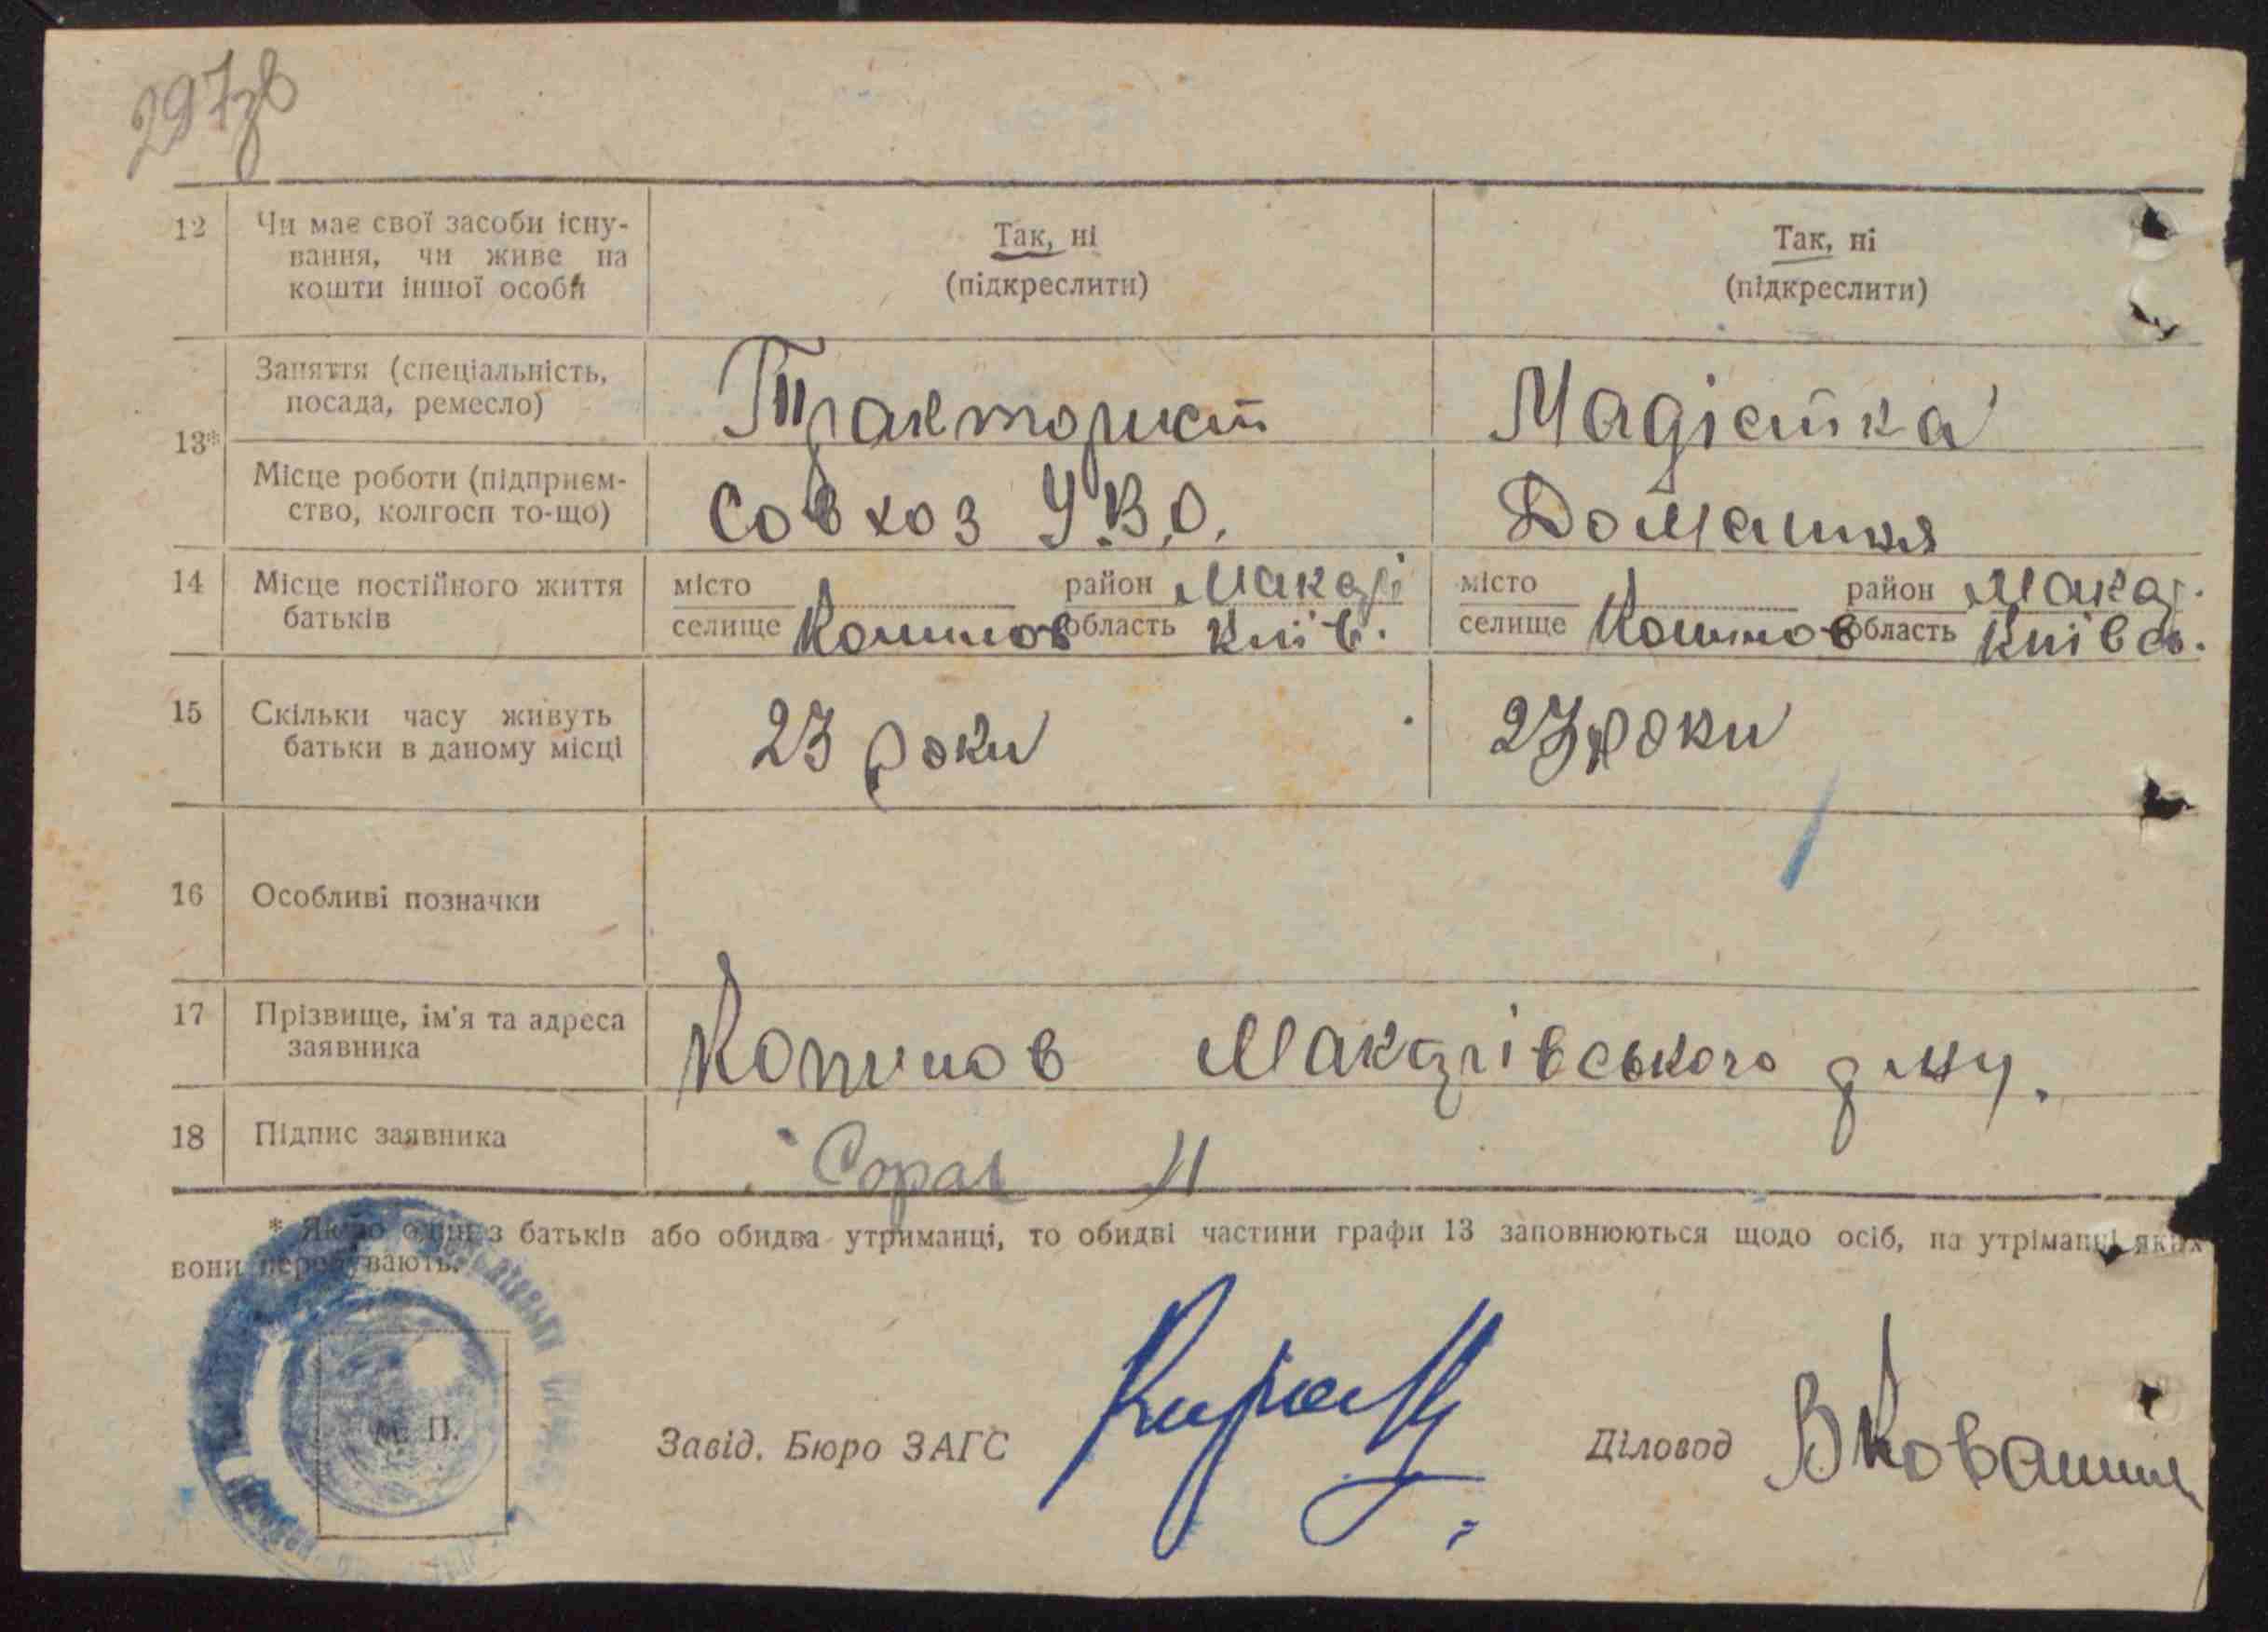 297зв
12 Чи має свої засоби існу- Так, ні Так, ні
вання, чи живе на
кошти іншої особи (підкреслити) (підкреслити)
13* Заняття (спеціальність, Тракторист Модістка
посада, ремесло)
Місце роботи (підприєм- Совхоз У.В.О. Домашня
ство, колгосп то-що)
14 Місце постійного життя місто район Макарі місто район Макар.
батьків селище Копилов область Київ. селище Копилов область Київсь.
15 Скільки часу живуть 23 роки 23 роки
батьки в даному місці
16 Особливі позначки
17 Прізвище, ім'я та адреса Копилов Макарівського р-ну.
заявника
18 Підпис заявника
* Якщо один з батьків або обидва утриманці, то обидві частини графи 13 заповнюються щодо осіб, на утріманні яких
вони перебувають.
М. П.
Завід. Бюро ЗАГС Діловод